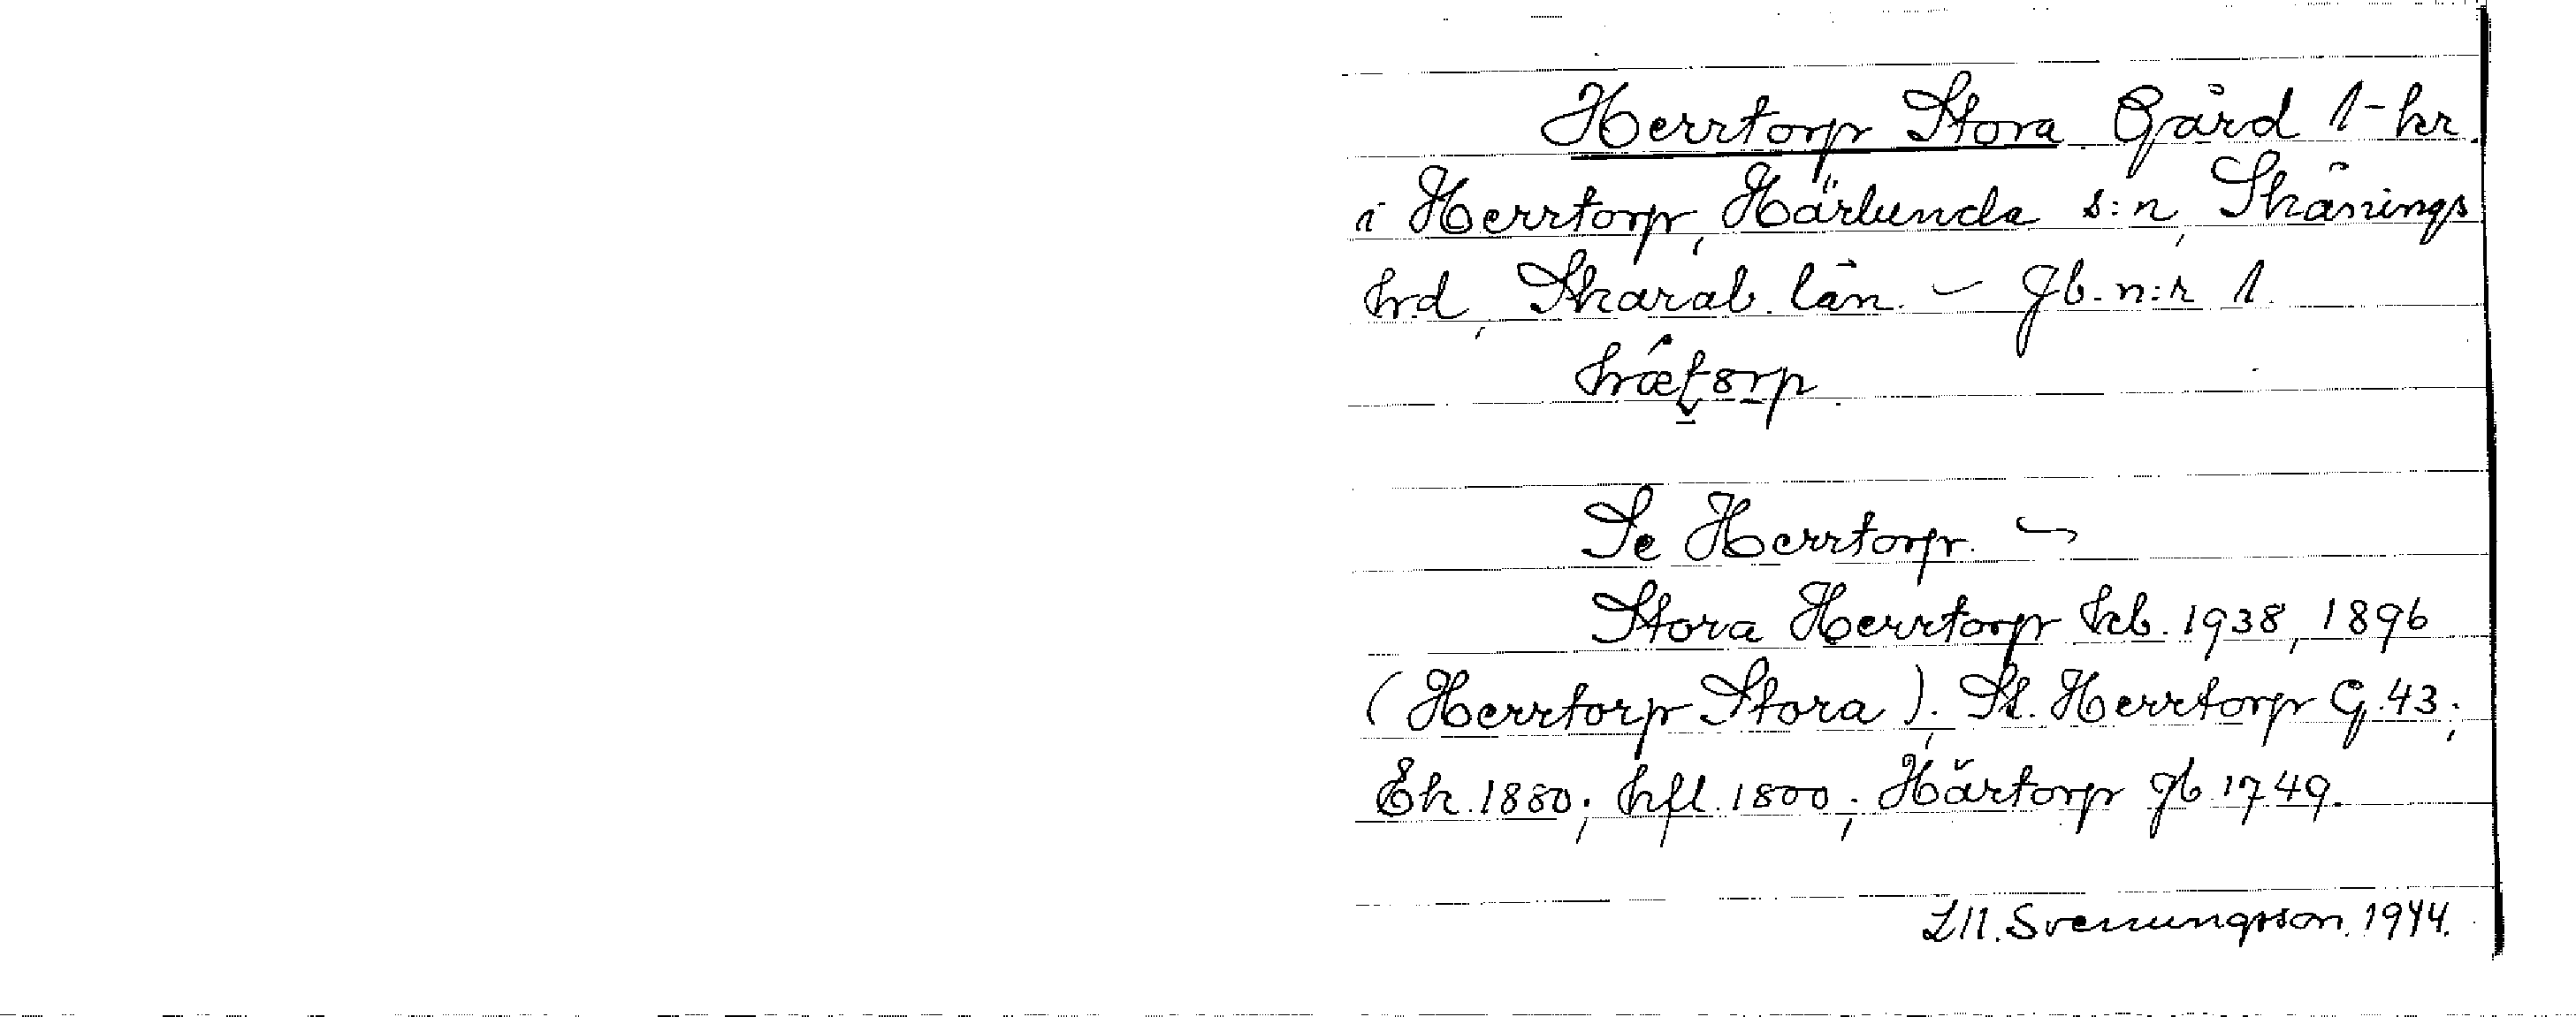 Herrtorp Stora Gård 1-hr.
i Herrtorp, Härlunda s:n, Skånings
hd, Skarab. län. – Jb. n:r 1.
Se Herrtorp. –
Stora Herrtorp hkb. 1938, 1896
(Herrtorp Stora); St. Herrtorp G. 43;
Ek. 1880; hfl. 1800; Härtorp jb. 1749.
Svenungsson. 1944.